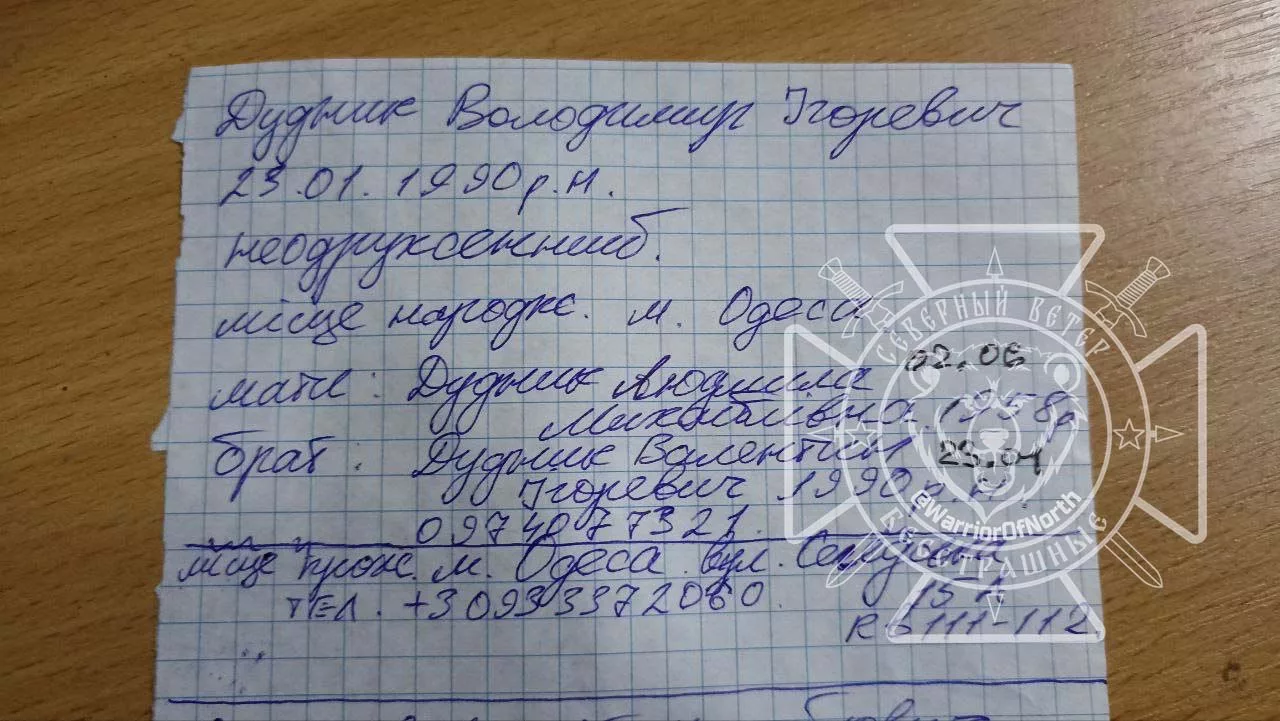 Дудник Володимир Ігоревич
23.01.1990р.н.
неодружений.
місце народж. м. Одеса
мати: Дудник Людмила 02.06
Михайлівна 1958р
брат: Дудник Валентин 23.01
Ігоревич 1990р.н
0974077321.
місце прож. м. Одеса вул.
тел. +3093 3372060.
111-112
СЕВЕРНЫЙ ВЕТЕР
@WarriorOfNorth
БЕССТРАШНЫЕ